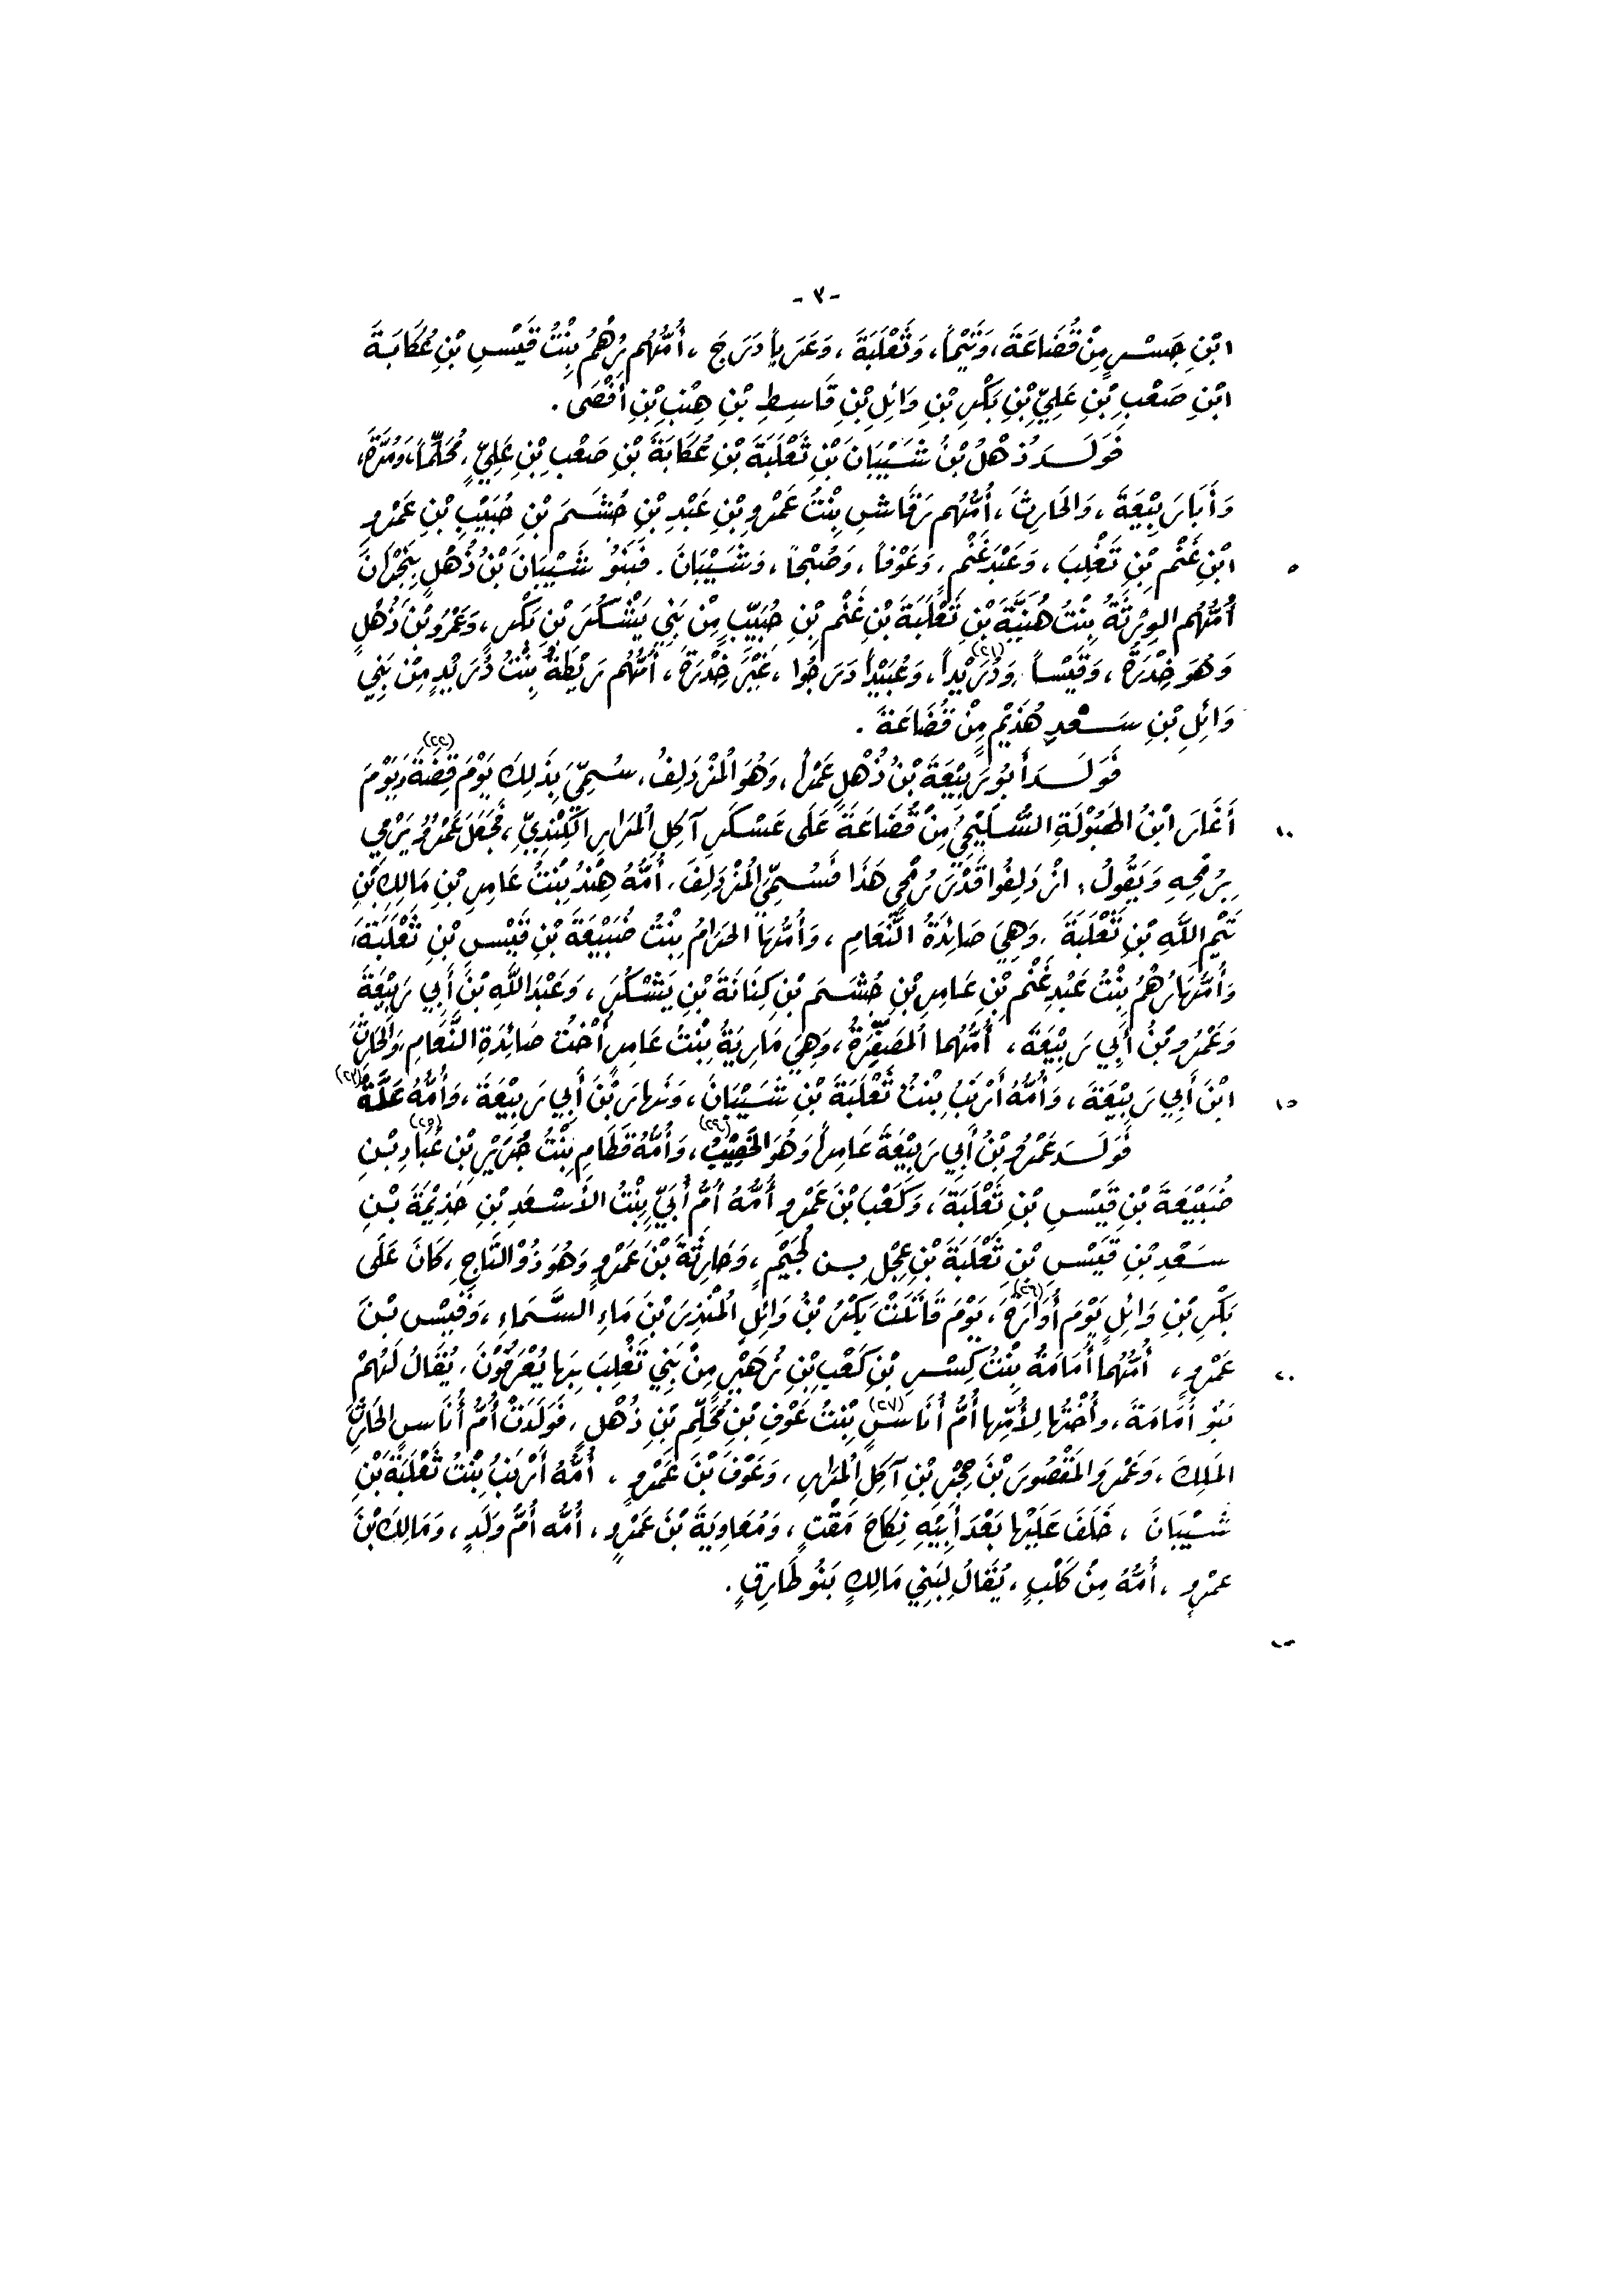 - ٣ -
ابْنِ جَسْرٍ مِنْ قُضَاعَةَ، وَتَيْماً، وَثَعْلَبَةَ، وَعَرَباً دَرَجَ، أُمُّهُم رُهْمُ بِنْتُ قَيْسِ بْنِ عُكَابَةَ
ابْنِ صَعْبِ بْنِ عَلِيِّ بْنِ بَكْرِ بْنِ وَائِلِ بْنِ قَاسِطِ بْنِ هِنْبِ بْنِ أَفْصَى.
فَوَلَدَ ذُهْلُ بْنُ شَيْبَانَ بْنِ ثَعْلَبَةَ بْنِ عُكَابَةَ بْنِ صَعْبِ بْنِ عَلِيٍّ، مُحَلِّماً، وَمُرَّةَ،
وَأَبَا رَبِيْعَةَ، وَالحَارِثَ، أُمُّهُم رَقَاشِ بِنْتُ عَمْرِو بْنِ عَبْدِ بْنِ جُشَمَ بْنِ حُبَيْبِ بْنِ عَمْرِو
ابْنِ غَنْمِ بْنِ تَغْلِبَ، وَعَبْدَ غَنْمٍ، وَعَوْفاً، وَصُبْحاً، وَشَيْبَانَ. فَبَنُو شَيْبَانَ بْنِ ذُهْلٍ بِنَجْرَانَ ٥
أُمُّهُم الوِرْثَةُ بِنْتُ هُنَيَّةَ بْنِ ثَعْلَبَةَ بْنِ غَنْمِ بْنِ حُبَيِّبٍ مِنْ بَنِي يَشْكُرَ بْنِ بَكْرٍ، وَعَمْرَو بْنَ ذُهْلٍ
وَهُوَ خِدْرَةُ، وَقَيْساً، وَدُرَيْداً (٢١)، وَعُبَيْداً دَرَجُوا، غَيْرَ خِدْرَةَ، أُمُّهُم رَيْطَةُ بِنْتُ دُرَيْدٍ مِنْ بَنِي
وَائِلِ بْنِ سَعْدِ هُذَيْمٍ مِنْ قُضَاعَةَ.
فَوَلَدَ أَبُو رَبِيْعَةَ بْنُ ذُهْلٍ عَمْراً، وَهُوَ الْمُزْدَلِفُ، سُمِّيَ بِذَلِكَ يَوْمَ قِضَةَ (٢٢) وَيَوْمَ
أَغَارَ ابْنُ الهَبُوْلَةِ السَّلِيْحِيُّ مِنْ قُضَاعَةَ عَلَى عَسْكَرِ آكِلِ الْمُرَارِ الكِنْدِيِّ، فَجَعَلَ عَمْرٌو يَرْمِي ١٠
بِرُمْحِهِ وَيَقُولُ: ازْدَلِفُوا قَدْرَ رُمْحِي هَذَا فَسُمِّيَ الْمُزْدَلِفَ، أُمُّهُ هِنْدُ بِنْتُ عَامِرِ بْنِ مَالِكِ بْنِ
تَيْمِ اللَّهِ بْنِ ثَعْلَبَةَ، وَهِيَ صَائِدَةُ النَّعَامِ، وَأُمُّهَا الحَرَامُ بِنْتُ ضُبَيْعَةَ بْنِ قَيْسِ بْنِ ثَعْلَبَةَ،
وَأُمُّهَا رُهْمُ بِنْتُ عَبْدِ غَنْمِ بْنِ عَامِرِ بْنِ جُشَمَ بْنِ كِنَانَةَ بْنِ يَشْكُرَ، وَعَبْدَ اللَّهِ بْنَ أَبِي رَبِيْعَةَ
وَعَمْرُو بْنُ أَبِي رَبِيْعَةَ، أُمُّهُما المُصَغَّرَةُ، وَهِيَ مَارِيَةُ بِنْتُ عَامِرٍ أُخْتُ صَائِدَةِ النَّعَامِ، وَالحَارِثَ
ابْنَ أَبِي رَبِيْعَةَ، وَأُمُّهُ أَرْنَبُ بِنْتُ ثَعْلَبَةَ بْنِ شَيْبَانَ، وَنَهارَ بْنَ أَبِي رَبِيْعَةَ، وَأُمُّهُ عَلَّةُ (٢٣) ١٥
فَوَلَدَ عَمْرُو بْنُ أَبِي رَبِيْعَةَ عَامِراً وَهُوَ الخَصِيْبُ (٢٤)، وَأُمُّهُ قَطَامِ بِنْتُ جُرَيْرِ بْنِ عُبَادِ (٢٥) بْنِ
ضُبَيْعَةَ بْنِ قَيْسِ بْنِ ثَعْلَبَةَ، وَكَعْبَ بْنَ عَمْرٍو أُمُّهُ أُمُّ أُبَيٍّ بِنْتُ الأَسْعَدِ بْنِ جَذِيْمَةَ بْنِ
سَعْدِ بْنِ قَيْسِ بْنِ ثَعْلَبَةَ بْنِ عِجْلِ بن لُجَيْمٍ، وَحَارِثَةَ بْنَ عَمْرٍو وَهُوَ ذُوْ التَّاجِ، كَانَ عَلَى
بَكْرِ بْنِ وَائِلٍ يَوْمَ أُوَارَةَ (٢٦)، يَوْمَ قَاتَلَتْ بَكْرُ بْنُ وَائِلٍ الْمُنْذِرَ بْنَ مَاءِ السَّمَاءِ، وَقَيْس بْنَ
عَمْرٍو، أُمُّهُما أُمَامَةُ بِنْتُ كِسْرِ بْنِ كَعْبِ بْنِ زُهَيْرٍ مِنْ بَنِي تَغْلِبَ بِهَا يُعْرَفُوْنَ، يُقَالُ لَهُمْ ٢٠
بَنُو أُمَامَةَ، وأُخْتُها لِأُمِّها أُمُّ أُنَاسٍ (٢٧) بِنْتُ عَوْفِ بْنِ مُحَلِّمِ بْنِ ذُهْلٍ، فَوَلَدَتْ أُمُّ أُنَاسٍ الحَارِثَ
المَلِكَ، وَعَمْرَو المَقْصُورَ بْنَ حِجْرِ بْنِ آكِلِ الْمُرَارِ، وَعَوْفَ بْنَ عَمْرٍو، أُمُّهُ أَرْنَبُ بِنْتُ ثَعْلَبَةَ بْنِ
شَيْبَانَ، خَلَفَ عَلَيْها بَعْدَ أَبِيْهِ نِكَاحَ مَقْتٍ، وَمُعَاوِيَةَ بْنَ عَمْرٍو، أُمُّه أُمُّ وَلَدٍ، وَمَالِكَ بْنَ
عمْرٍو، أُمُّهُ مِنْ كَلْبٍ، يُقَالُ لِبَنِي مَالِكٍ بَنُو طَارِقٍ.